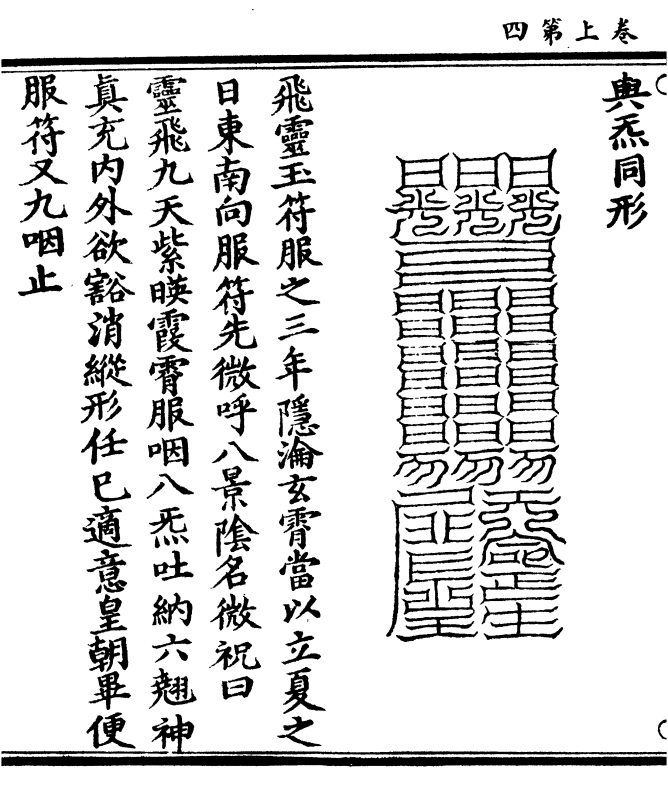 卷上第四
與炁同形
飛靈玉符服之三年隱淪玄霄當以立夏之
日東南向服符先微呼八景陰名微祝曰
靈飛九天紫暎霞霄服咽八炁吐納六翹神
眞充內外欲豁消縱形任巳適意皇朝畢便
服符又九咽止